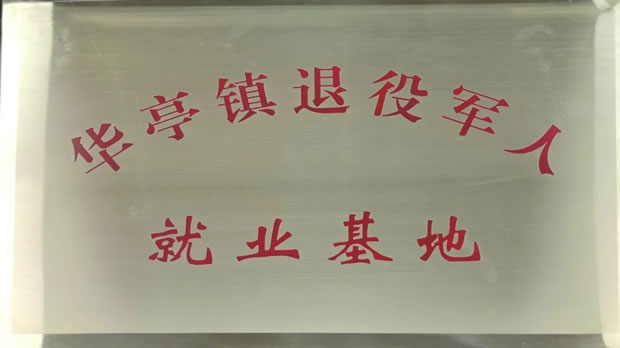 华亭镇退役军人
就业基地